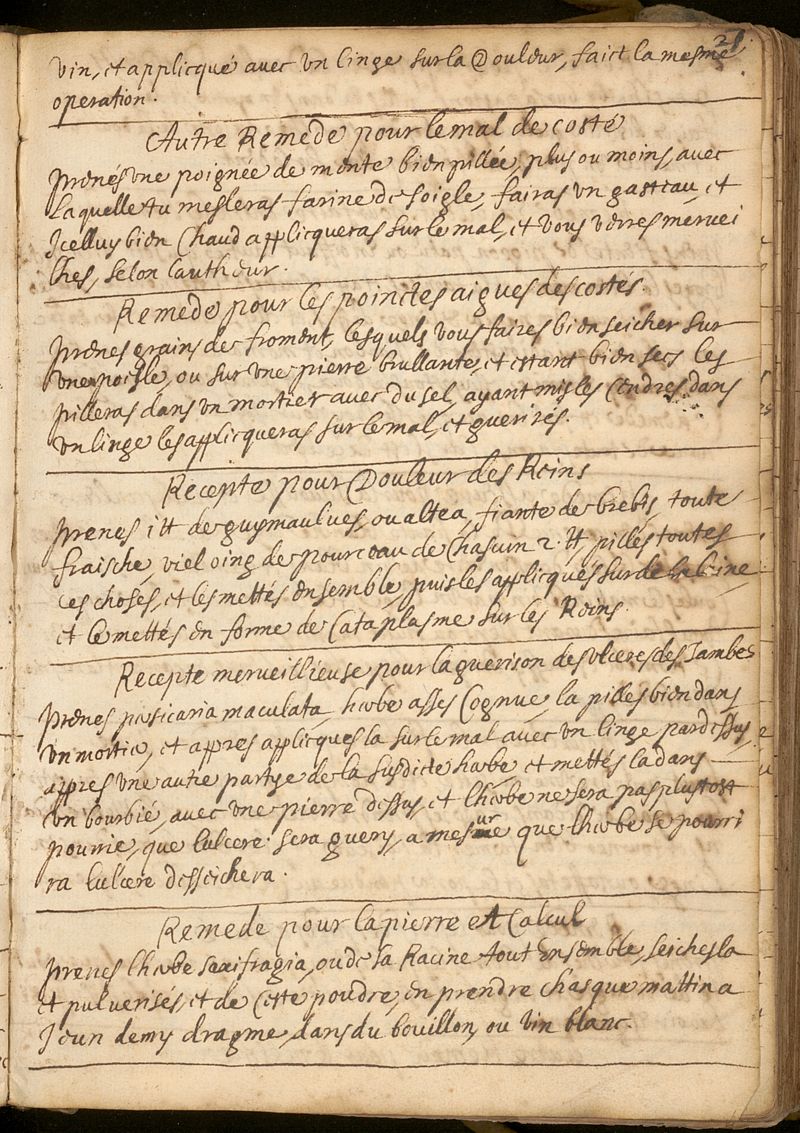 21
vin, et applicqué avec vn linge sur la Douleur, faict la mesme
operation.
Autre Remede pour le mal de costé
prenés vne poignée de mente bien pillée, plus ou moins, avec
laquelle tu mesleras farine de soigle, fairas vn gasteau, et
Icelluy bien Chaud applicqueras sur le mal, et vous verres mervei
lhes, selon l'autheur.
Remede pour les poinctes aigues des costés.
prenes grains de froment, lesquels vous faires bien seicher sur
vne poisle, ou sur vne pierre brullante, et estant bien secs les
pilleras dans vn mortier avec du sel, ayant mis les Cendres dans
vn linge les applicqueras sur le mal, et guerirés.
Recepte pour Douleur des Reins
prenes 1 ℔ de guymaulves, ou altea, fiante de brebis, toute
fraische, viel oing de pourceau de Chasuin 2 ℔, pillés toutes
ces choses, et les mettés ensemble, puis les applicqués sur de la laine
et le mettés en forme de Cataplasme sur les Reins.
Recepte merveillieuse pour la guerison des vlceres des Jambes
prenes persicaria maculata, herbe asses Cognue, la pilles bien dans
vn mortier, et appres applicques la sur le mal avec vn linge par dessus,
appres vne autre partye de la susdicte herbe, et mettés la dans
vn bourbié, avec vne pierre dessus, et l'herbe ne sera pas plustost
pourrie, que l'ulcere sera guery, a mesure que l'herbe se pourri
ra l'ulcere desseichera.
Remede pour la pierre et Calcul
prenes l'herbe saxifragia, ou de sa Racine tout Ensemble, seiches la
et pulverisés, et de Ceste poudre, en prendre chasque mattin a
Jeun demy dragme, dans du bouillon, ou vin blanc.